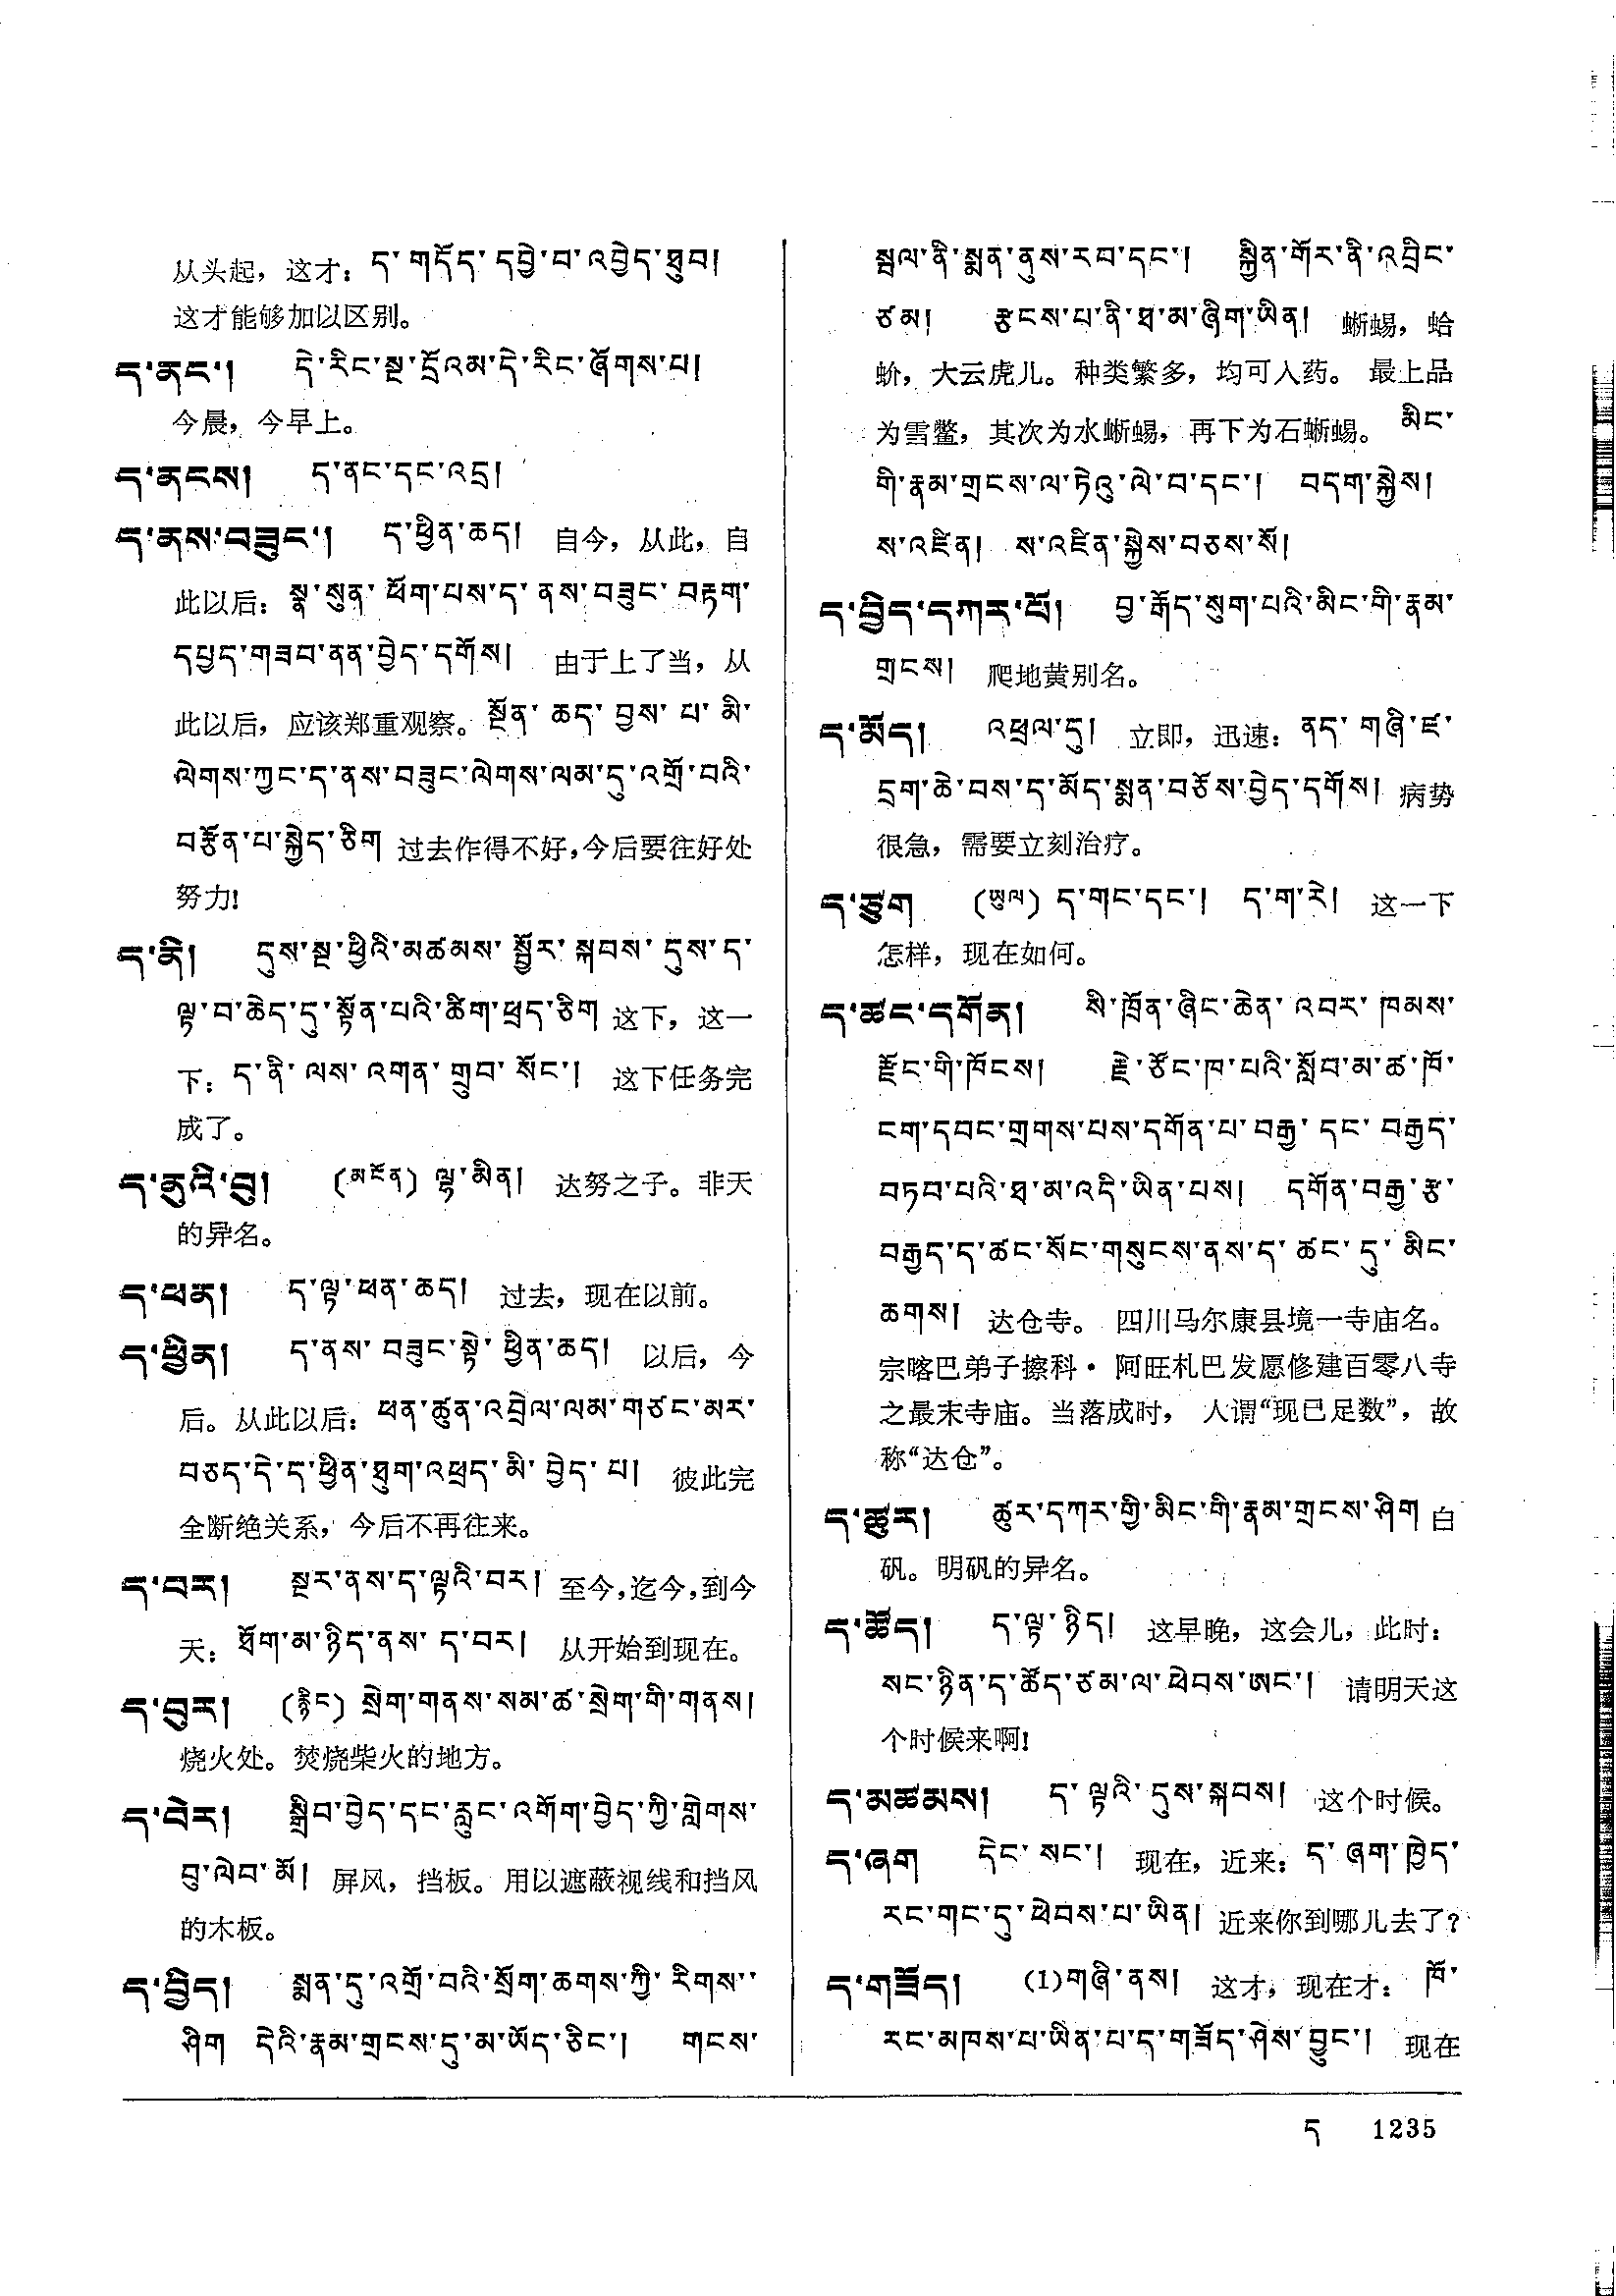 从头起，这才：ད་གདོད་དབྱེ་བ་འབྱེད་ཐུབ།
这才能够加以区别。
ད་ནང་། དེ་རིང་སྔ་དྲོའམ་དེ་རིང་ཞོགས་པ།
今晨，今早上。
ད་ནངས། ད་ནང་དང་འདྲ།
ད་ནས་བཟུང་། ད་ཕྱིན་ཆད། 自今，从此，自
此以后：སྣ་སུན་ཕོག་པས་ད་ནས་བཟུང་བརྟག་
དཔྱད་གཟབ་ནན་བྱེད་དགོས། 由于上了当，从
此以后，应该郑重观察。སྔོན་ཆད་བྱས་པ་མི་
ལེགས་ཀྱང་ད་ནས་བཟུང་ལེགས་ལམ་དུ་འགྲོ་བའི་
བརྩོན་པ་སྐྱེད་ཅིག 过去作得不好，今后要往好处
努力！
ད་ནི། དུས་སྔ་ཕྱིའི་མཚམས་སྦྱོར་སྐབས་དུས་ད་
ལྟ་བ་ཆེད་དུ་སྟོན་པའི་ཚིག་ཕྲད་ཅིག 这下，这一
下：ད་ནི་ལས་འགན་གྲུབ་སོང་། 这下任务完
成了。
ད་ནུའི་བུ། (མངོན) ལྷ་མིན། 达努之子。非天
的异名。
ད་ཕན། ད་ལྟ་ཕན་ཆད། 过去，现在以前。
ད་ཕྱིན། ད་ནས་བཟུང་སྟེ་ཕྱིན་ཆད། 以后，今
后。从此以后：ཕན་ཚུན་འབྲེལ་ལམ་གཙང་མར་
བཅད་དེ་ད་ཕྱིན་ཐུག་འཕྲད་མི་བྱེད་པ། 彼此完
全断绝关系，今后不再往来。
ད་བར། སྔར་ནས་ད་ལྟའི་བར། 至今，迄今，到今
天：ཐོག་མ་ཉིད་ནས་ད་བར། 从开始到现在。
ད་བུར། (རྙིང) སྲེག་གནས་སམ་ཚ་སྲེག་གི་གནས།
烧火处。焚烧柴火的地方。
ད་བེར། སྒྲིབ་བྱེད་དང་རླུང་འགོག་བྱེད་ཀྱི་གླེགས་
བུ་ལེབ་མོ། 屏风，挡板。用以遮蔽视线和挡风
的木板。
ད་བྱིད། སྨན་དུ་འགྲོ་བའི་སྲོག་ཆགས་ཀྱི་རིགས་
ཤིག དེའི་རྣམ་གྲངས་དུ་མ་ཡོད་ཅིང་། གངས་
སྦལ་ནི་སྨན་ནུས་རབ་དང་། སྐྱིན་གོར་ནི་འབྲིང་
ཙམ། རྩངས་པ་ནི་ཐ་མ་ཞིག་ཡིན། 蜥蜴，蛤
蚧，大云虎儿。种类繁多，均可入药。最上品
为雪鳖，其次为水蜥蜴，再下为石蜥蜴。མིང་
གི་རྣམ་གྲངས་ལ་ཏེའུ་ལེ་བ་དང་། བདག་སྐྱེས།
ས་འཛིན། ས་འཛིན་སྐྱེས་བཅས་སོ།
ད་བྱིད་དཀར་པོ། བྱ་རྒོད་སུག་པའི་མིང་གི་རྣམ་
གྲངས། 爬地黄别名。
ད་མོད། འཕྲལ་དུ། 立即，迅速：ནད་གཞི་ཛ་
དྲག་ཆེ་བས་ད་མོད་སྨན་བཅོས་བྱེད་དགོས། 病势
很急，需要立刻治疗。
ད་ཙུག (ཡུལ) ད་གང་དང་། ད་ག་རེ། 这一下
怎样，现在如何。
ད་ཚང་དགོན། སི་ཁྲོན་ཞིང་ཆེན་འབར་ཁམས་
རྫོང་གི་ཁོངས། རྗེ་ཙོང་ཁ་པའི་སློབ་མ་ཚ་ཁོ་
ངག་དབང་གྲགས་པས་དགོན་པ་བརྒྱ་དང་བརྒྱད་
བཏབ་པའི་ཐ་མ་འདི་ཡིན་པས། དགོན་བརྒྱ་རྩ་
བརྒྱད་ད་ཚང་སོང་གསུངས་ནས་ད་ཚང་དུ་མིང་
ཆགས། 达仓寺。四川马尔康县境一寺庙名。
宗喀巴弟子擦科·阿旺札巴发愿修建百零八寺
之最末寺庙。当落成时，人谓“现已足数”，故
称“达仓”。
ད་ཚུར། ཚུར་དཀར་གྱི་མིང་གི་རྣམ་གྲངས་ཤིག 白
矾。明矾的异名。
ད་ཚོད། ད་ལྟ་ཉིད། 这早晚，这会儿，此时：
སང་ཉིན་ད་ཚོད་ཙམ་ལ་ཕེབས་ཨང་། 请明天这
个时候来啊！
ད་མཚམས། ད་ལྟའི་དུས་སྐབས། 这个时候。
ད་ཞག དེང་སང་། 现在，近来：ད་ཞག་ཁྱེད་
རང་གང་དུ་ཕེབས་པ་ཡིན། 近来你到哪儿去了？
ད་གཟོད། (1)གཞི་ནས། 这才，现在才：ཁོ་
རང་མཁས་པ་ཡིན་པ་ད་གཟོད་ཤེས་བྱུང་། 现在
ད 1235